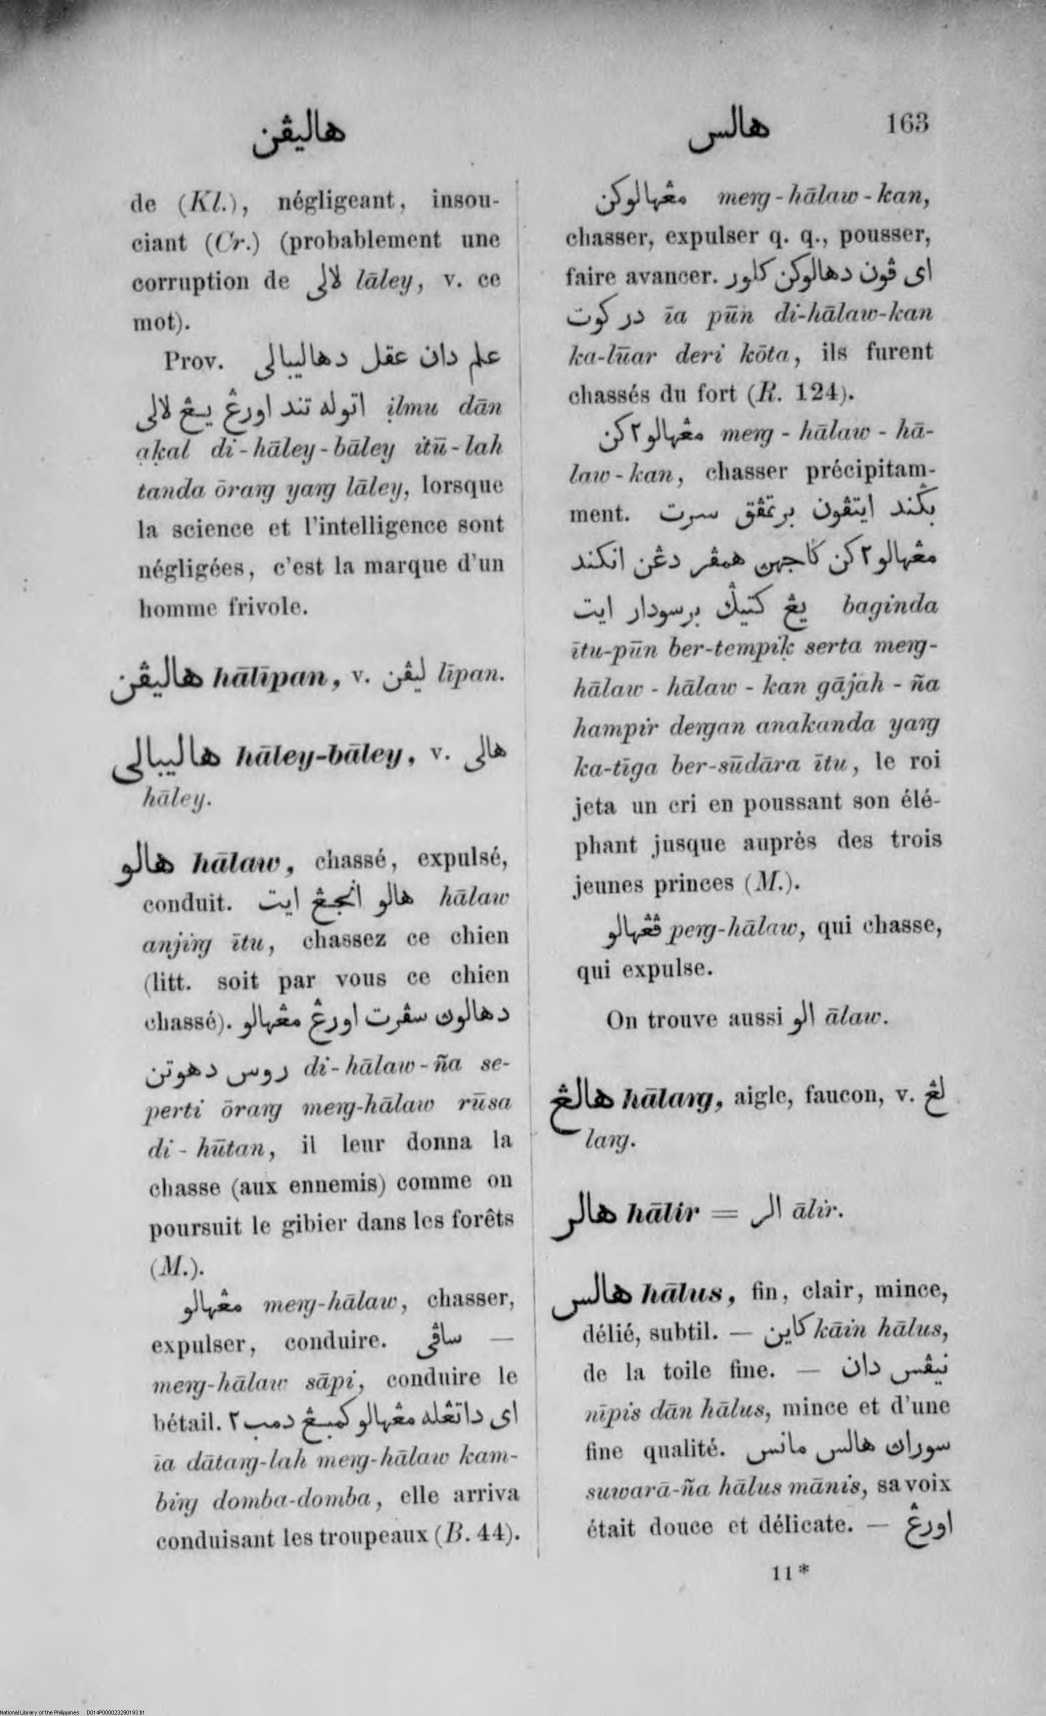 هاليڤن
هالس
163
de (Kl.), négligeant, insou-
ciant (Cr.) (probablement une
corruption de لالى lāley, v. ce
mot).
Prov. علم دان عقل دهاليبالى
اتوله تند اورڠ يڠ لالى ịlmu dān
ạḳal di-hāley-bāley ītū-lah
tanda ōraŋ yaŋ lāley, lorsque
la science et l'intelligence sont
négligées, c'est la marque d'un
homme frivole.
هاليڤن hālīpan, v. ليڤن līpan.
هاليبالى hāley-bāley, v. هالى
hāley.
هالو hālaw, chassé, expulsé,
conduit. هالو انجڠ ايت hālaw
anjiŋ ītu, chassez ce chien
(litt. soit par vous ce chien
chassé). دهالوڽ سڤرت اورڠ مڠهالو
روس دهوتن di-hālaw-ña se-
perti ōraŋ meŋ-hālaw rūsa
di-hūtan, il leur donna la
chasse (aux ennemis) comme on
poursuit le gibier dans les forêts
(M.).
مڠهالو meŋ-hālaw, chasser,
expulser, conduire. ساڤى —
meŋ-hālaw sāpi, conduire le
bétail. اى داتڠله مڠهالو كمبڠ دمب٢
īa dātaŋ-lah meŋ-hālaw kam-
biŋ domba-domba, elle arriva
conduisant les troupeaux (B. 44).
مڠهالوكن meŋ-hālaw-kan,
chasser, expulser q. q., pousser,
faire avancer. اى ڤون دهالوكن كلور
در كوت īa pūn di-hālaw-kan
ka-lūar deri kōta, ils furent
chassés du fort (R. 124).
مڠهالو٢كن meŋ-hālaw-hā-
law-kan, chasser précipitam-
ment. بڬند ايتڤون برتمڤق سرت
مڠهالو٢كن ڬاجهن همڤر دڠن انكند
يڠ كتيڬ برسودار ايت baginda
ītu-pūn ber-tempiḳ serta meŋ-
hālaw-hālaw-kan gājah-ña
hampir deŋan anakanda yaŋ
ka-tīga ber-sūdāra ītu, le roi
jeta un cri en poussant son élé-
phant jusque auprès des trois
jeunes princes (M.).
ڤڠهالو peŋ-hālaw, qui chasse,
qui expulse.
On trouve aussi الو ālaw.
هالڠ hālaŋ, aigle, faucon, v. لڠ
laŋ.
هالر hālir = الر ālir.
هالس hālus, fin, clair, mince,
délié, subtil. — كاين kāin hālus,
de la toile fine. — نيڤس دان
nīpis dān hālus, mince et d'une
fine qualité. سوراڽ هالس مانس
suwarā-ña hālus mānis, sa voix
était douce et délicate. — اورڠ
11*
National Library of the Philippines